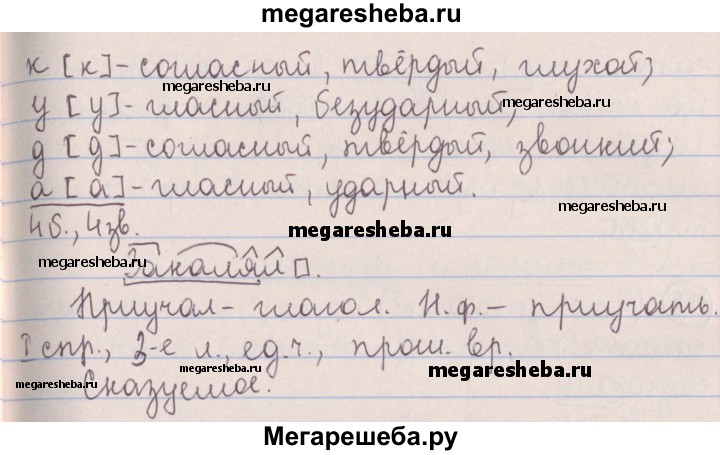 megaresheba.ru
к [к]- согласный, твёрдый, глухой;
megaresheba.ru
у [у]- гласный, безударный;
megaresheba.ru
megaresheba.ru
д [д]- согласный, твёрдый, звонкий;
а [а]- гласный, ударный.
megaresheba.ru
4б., 4зв.
megaresheba.ru
megaresheba.ru
Закалял□.
Приучал- глагол. Н.ф.- приучать.
I спр., 3-е л., ед.ч., прош. вр.
megaresheba.ru
megaresheba.ru
megaresheba.ru
Сказуемое.
Мегарешеба.ру